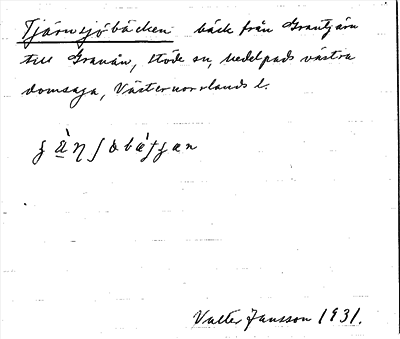 Tjärnsjöbäcken bäck från Grantjärn
till Granån, Stöde sn, Medelpads västra
domsaga, Västernorrlands l.
Valter Jansson 1931.